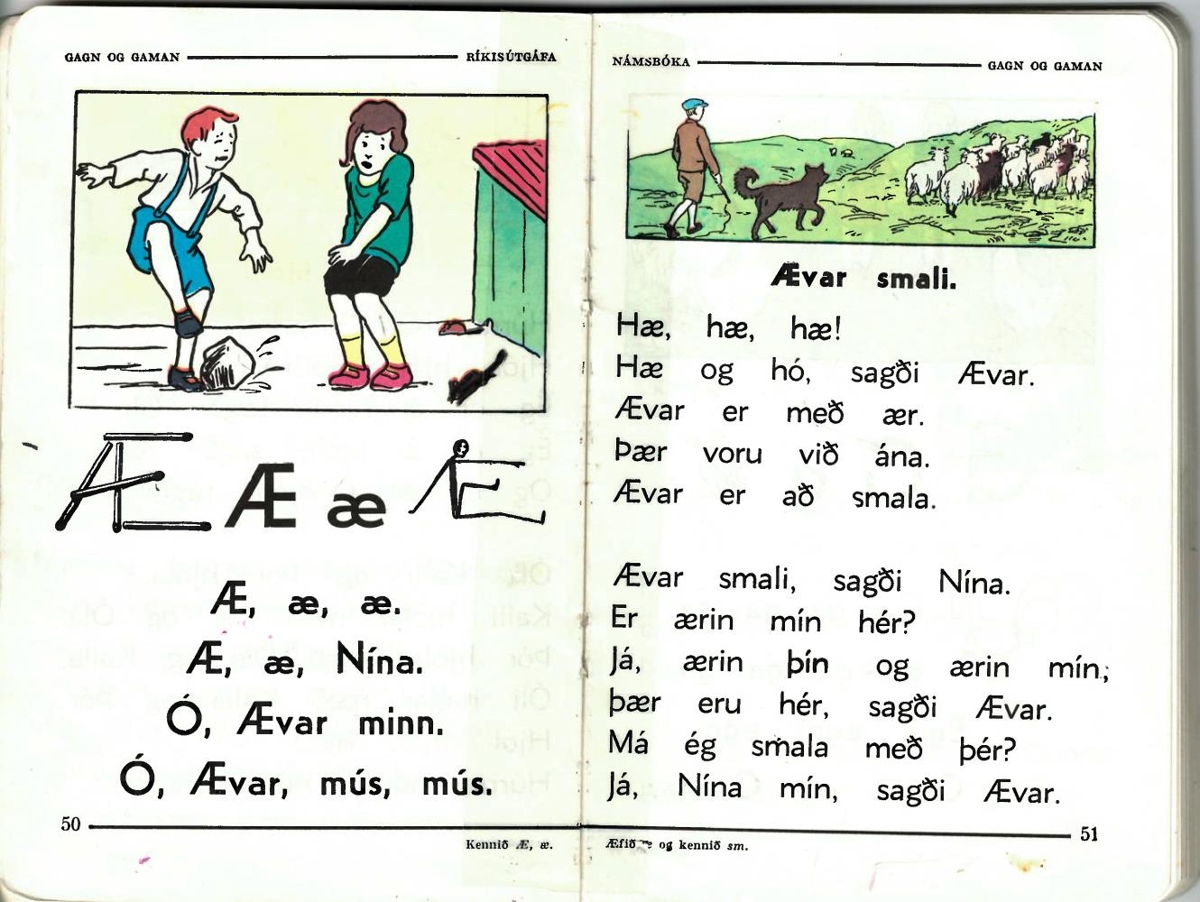 GAGN OG GAMAN
RÍKISÚTGÁFA
Æ Æ æ Æ
Æ, æ, æ.
Æ, æ, Nína.
Ó, Ævar minn.
Ó, Ævar, mús, mús.
50
Kennið Æ, æ.
NÁMSBÓKA
GAGN OG GAMAN
Ævar smali.
Hæ, hæ, hæ!
Hæ og hó, sagði Ævar.
Ævar er með ær.
Þær voru við ána.
Ævar er að smala.
Ævar smali, sagði Nína.
Er ærin mín hér?
Já, ærin þín og ærin mín,
þær eru hér, sagði Ævar.
Má ég smala með þér?
Já, Nína mín, sagði Ævar.
51
Æfið og kennið sm.